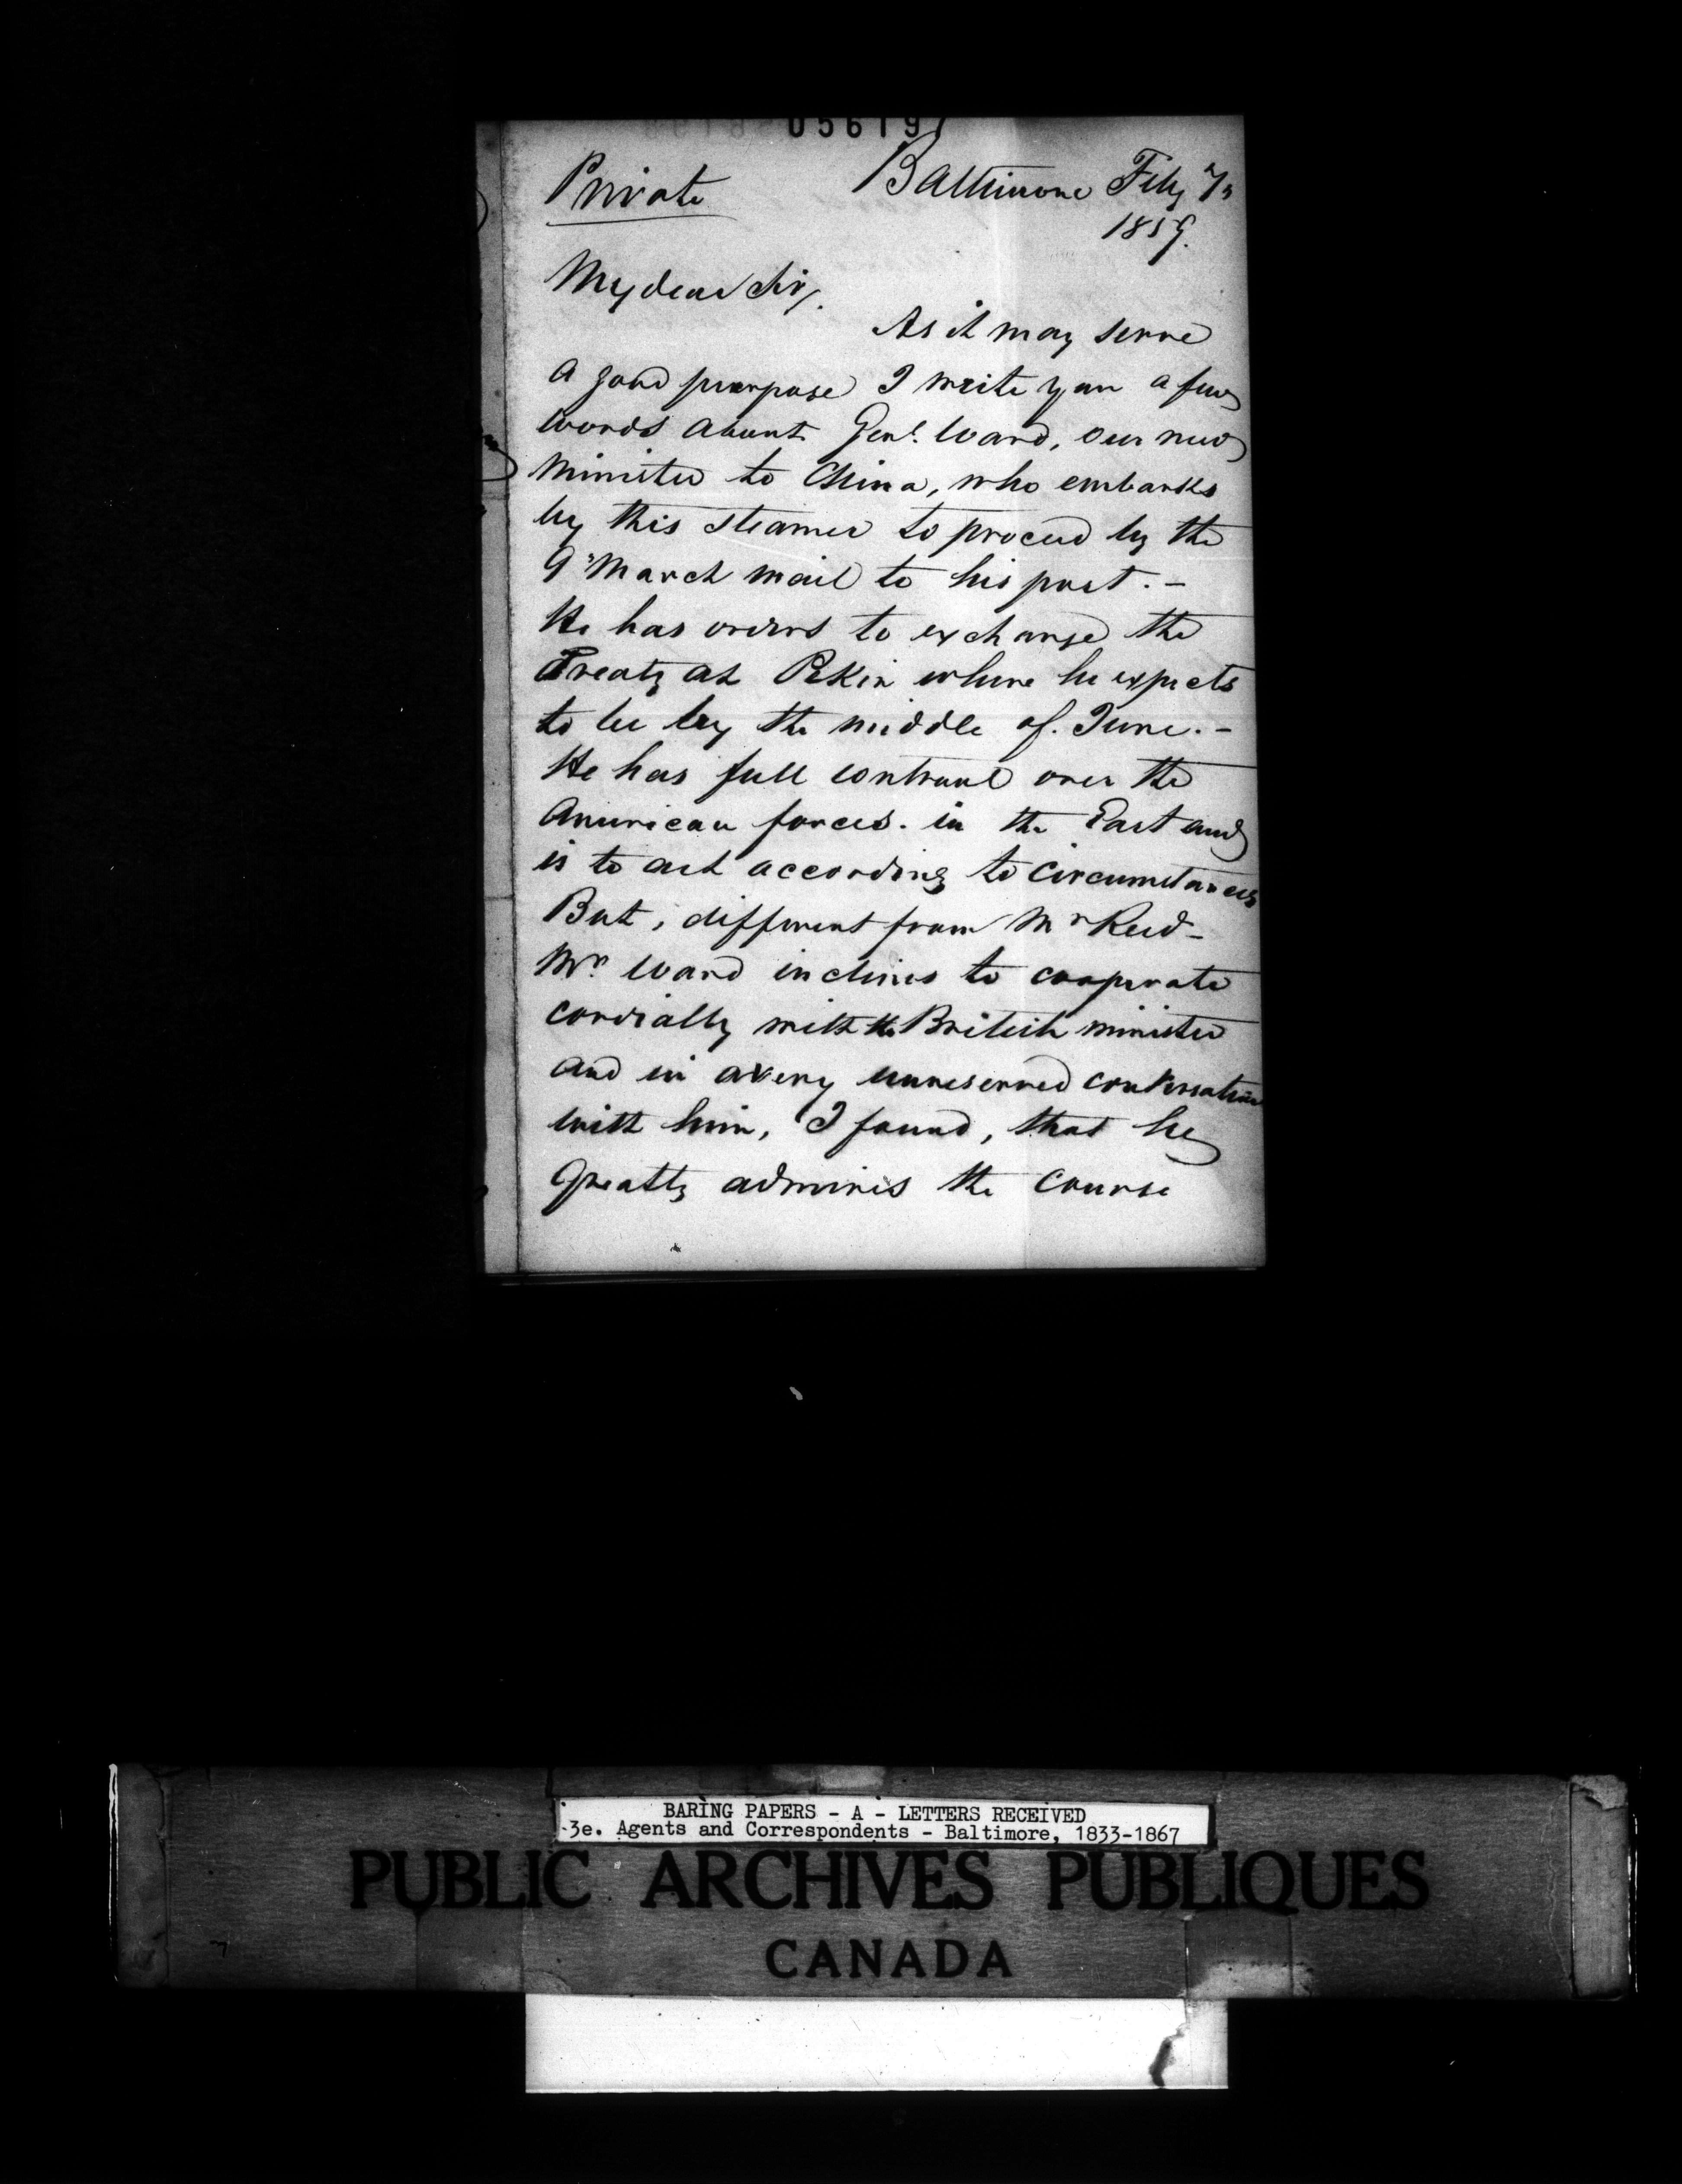 056197
Private
Baltimore Feby 7
1859.
My dear Sir,
As it may serve
a good purpose I write you a few
words about Genl. Ward, our new
Minister to China, who embarks
by this steamer to proceed by the
9" March mail to his post. -
He has orders to exchange the
Treaty at Pekin where he expects
to be by the middle of June. -
He has full controul over the
American forces. in the East and
is to act according to circumstances
But, different from Mr Reed -
Mr. Ward inclines to cooperate
cordially with the British minister
and in a very unreserved conversation
with him, I found, that he
greatly admires the course
BARING PAPERS - A - LETTERS RECEIVED
3e. Agents and Correspondents - Baltimore, 1833-1867
PUBLIC ARCHIVES PUBLIQUES
CANADA